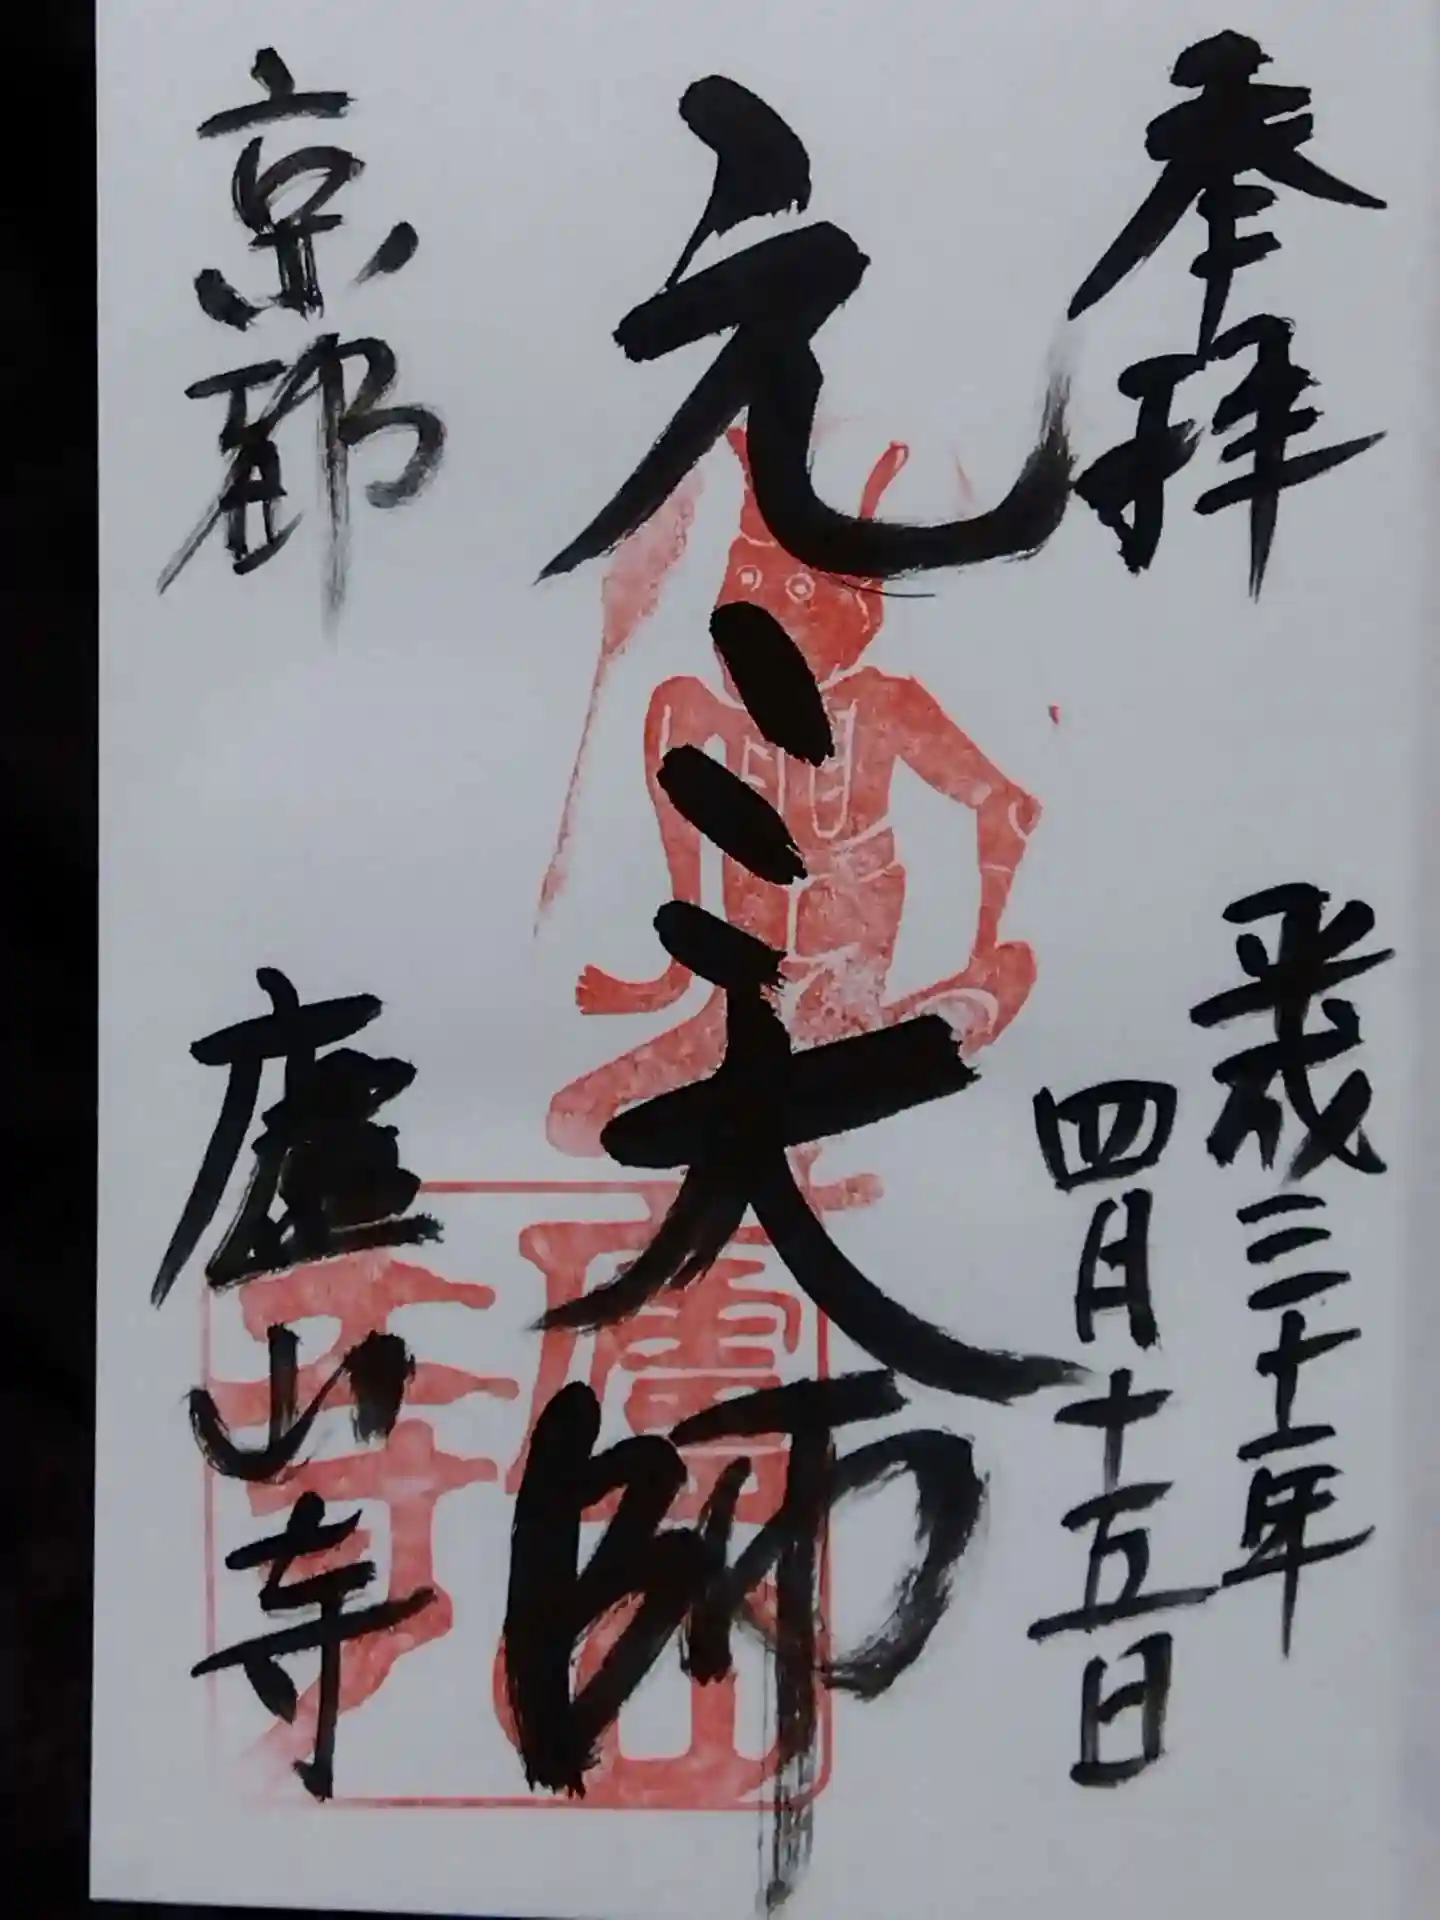 奉拝
平成三十一年
四月十五日
元三大師
京都
廬山寺
廬山寺